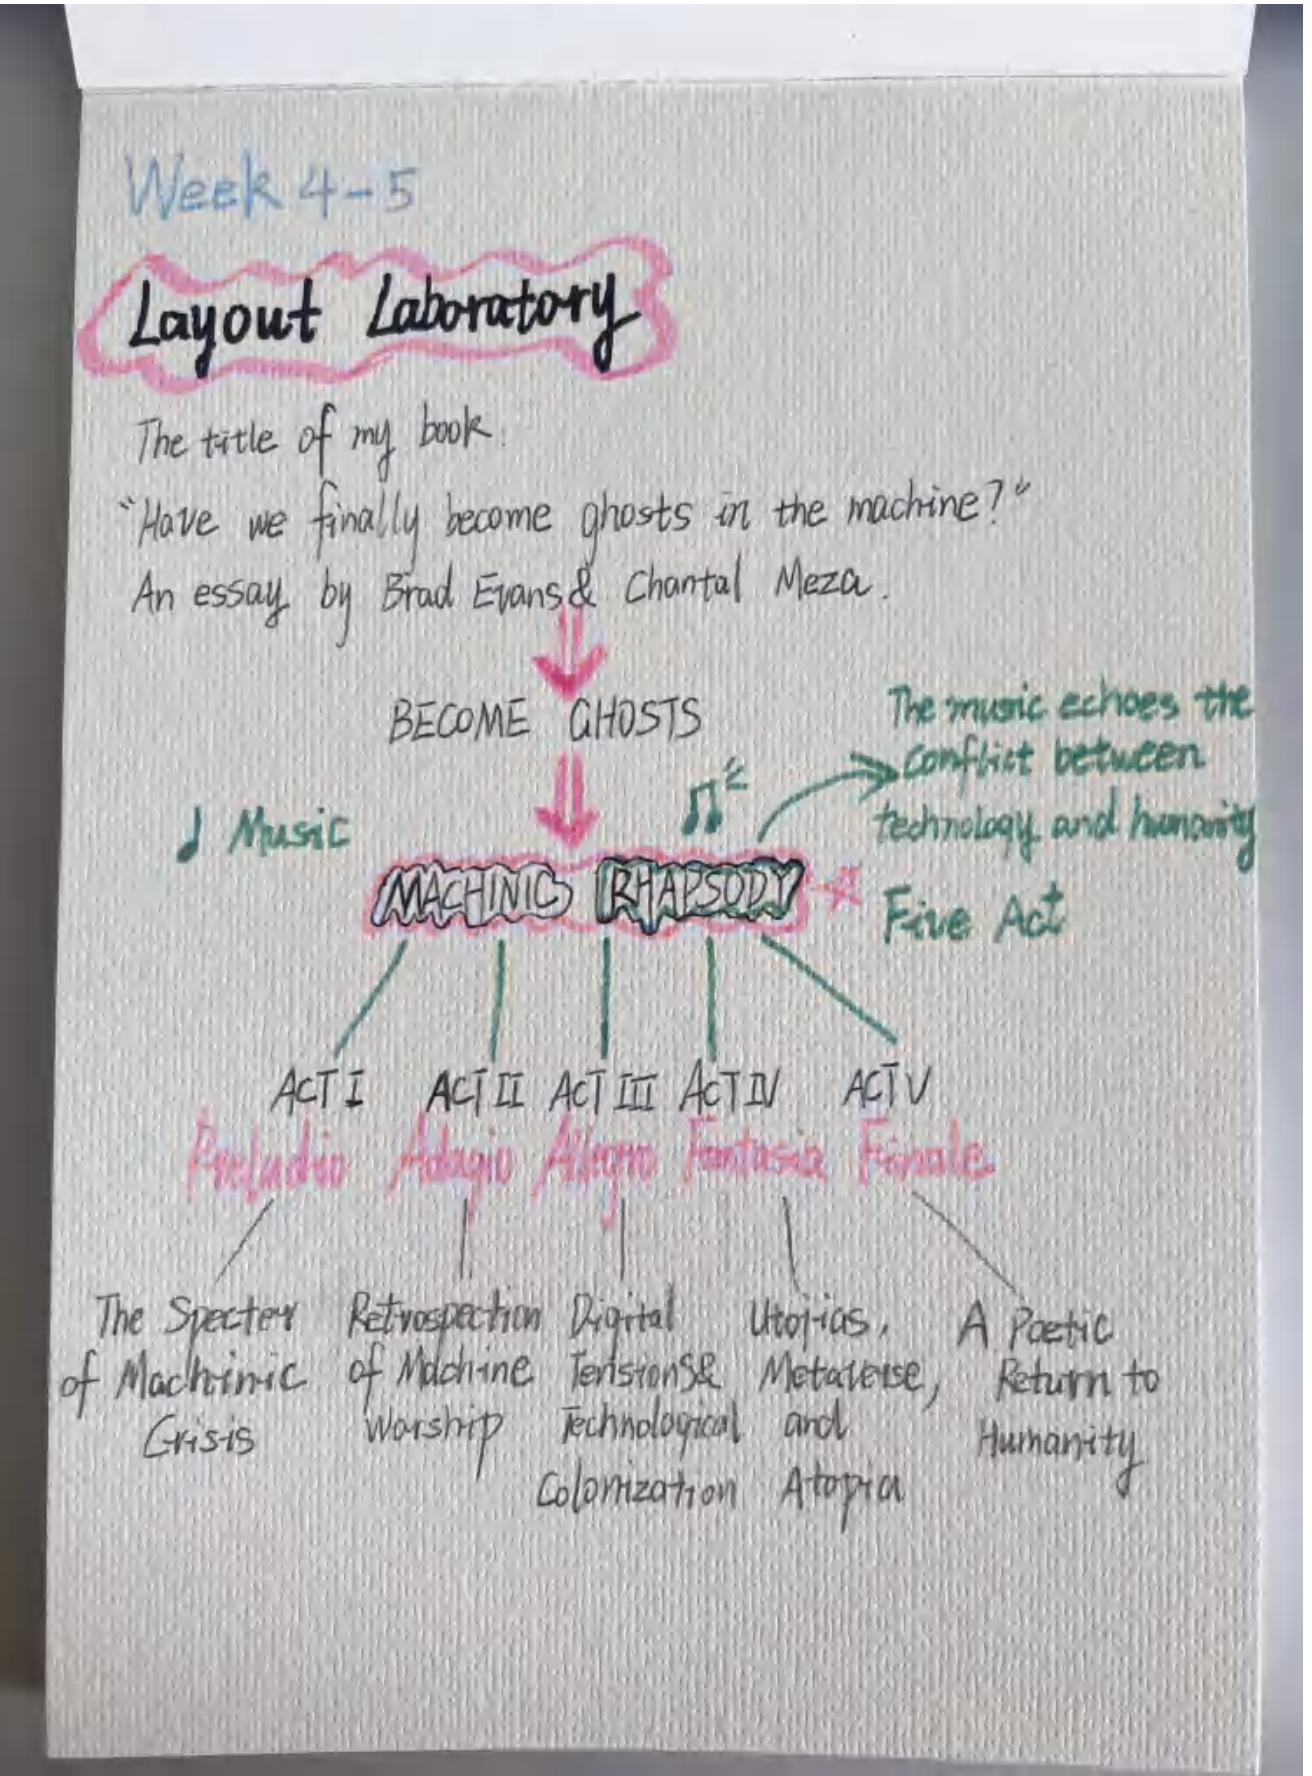 Week 4-5
Layout Laboratory
The title of my book:
"Have we finally become ghosts in the machine?"
An essay by Brad Evans & Chantal Meza.
BECOME GHOSTS
The music echoes the
conflict between
technology and humanity
Music
MACHINIC RHAPSODY
Five Act
ACT I ACT II ACT III ACT IV ACT V
Preludio Adagio Allegro Fantasia Finale
The Specter
of Machinic
Crisis
Retrospection
of Machine
Worship
Digital
Tensions&
Technological
Colonization
Utopias,
Metaverse,
and
Atopia
A Poetic
Return to
Humanity